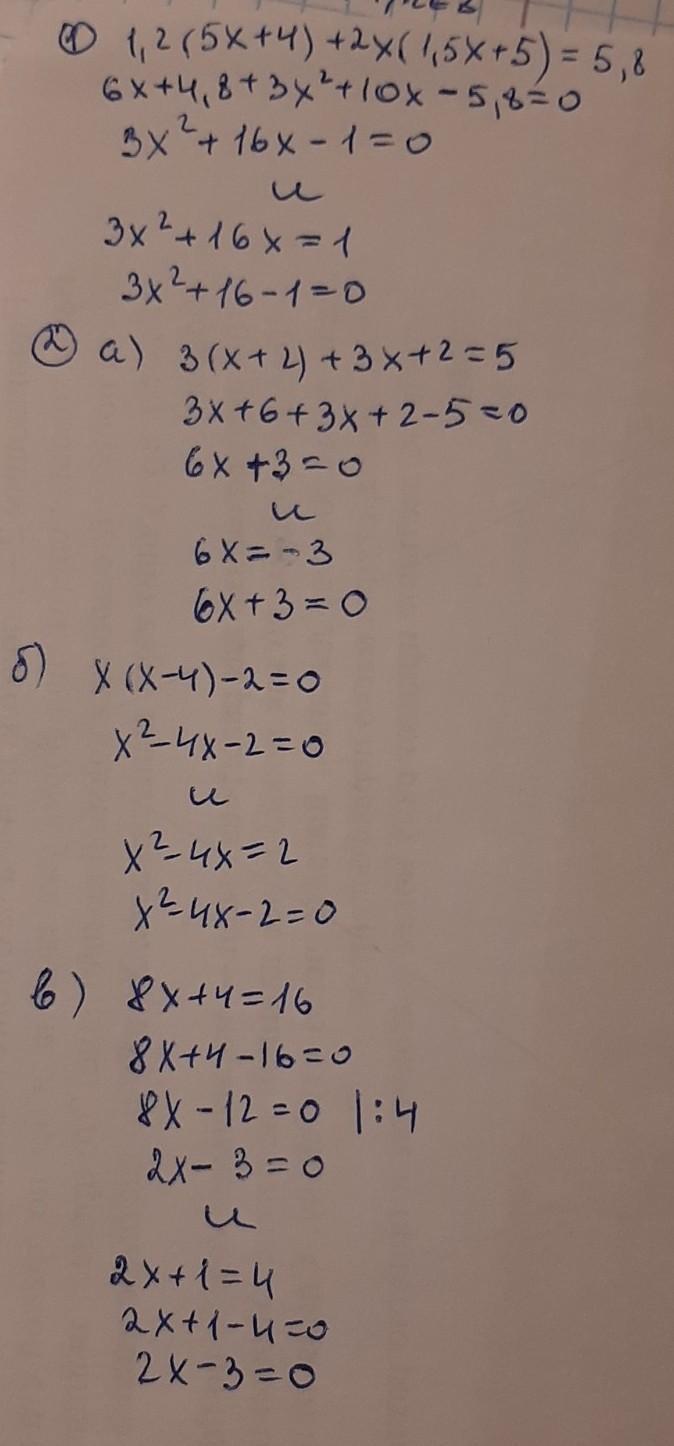 ① 1,2(5x+4)+2x(1,5x+5)=5,8
6x+4,8+3x²+10x-5,8=0
3x²+16x-1=0
и
3x²+16x=1
3x²+16-1=0
② а) 3(x+2)+3x+2=5
3x+6+3x+2-5=0
6x+3=0
и
6x=-3
6x+3=0
б) x(x-4)-2=0
x²-4x-2=0
и
x²-4x=2
x²-4x-2=0
в) 8x+4=16
8x+4-16=0
8x-12=0 |:4
2x-3=0
и
2x+1=4
2x+1-4=0
2x-3=0